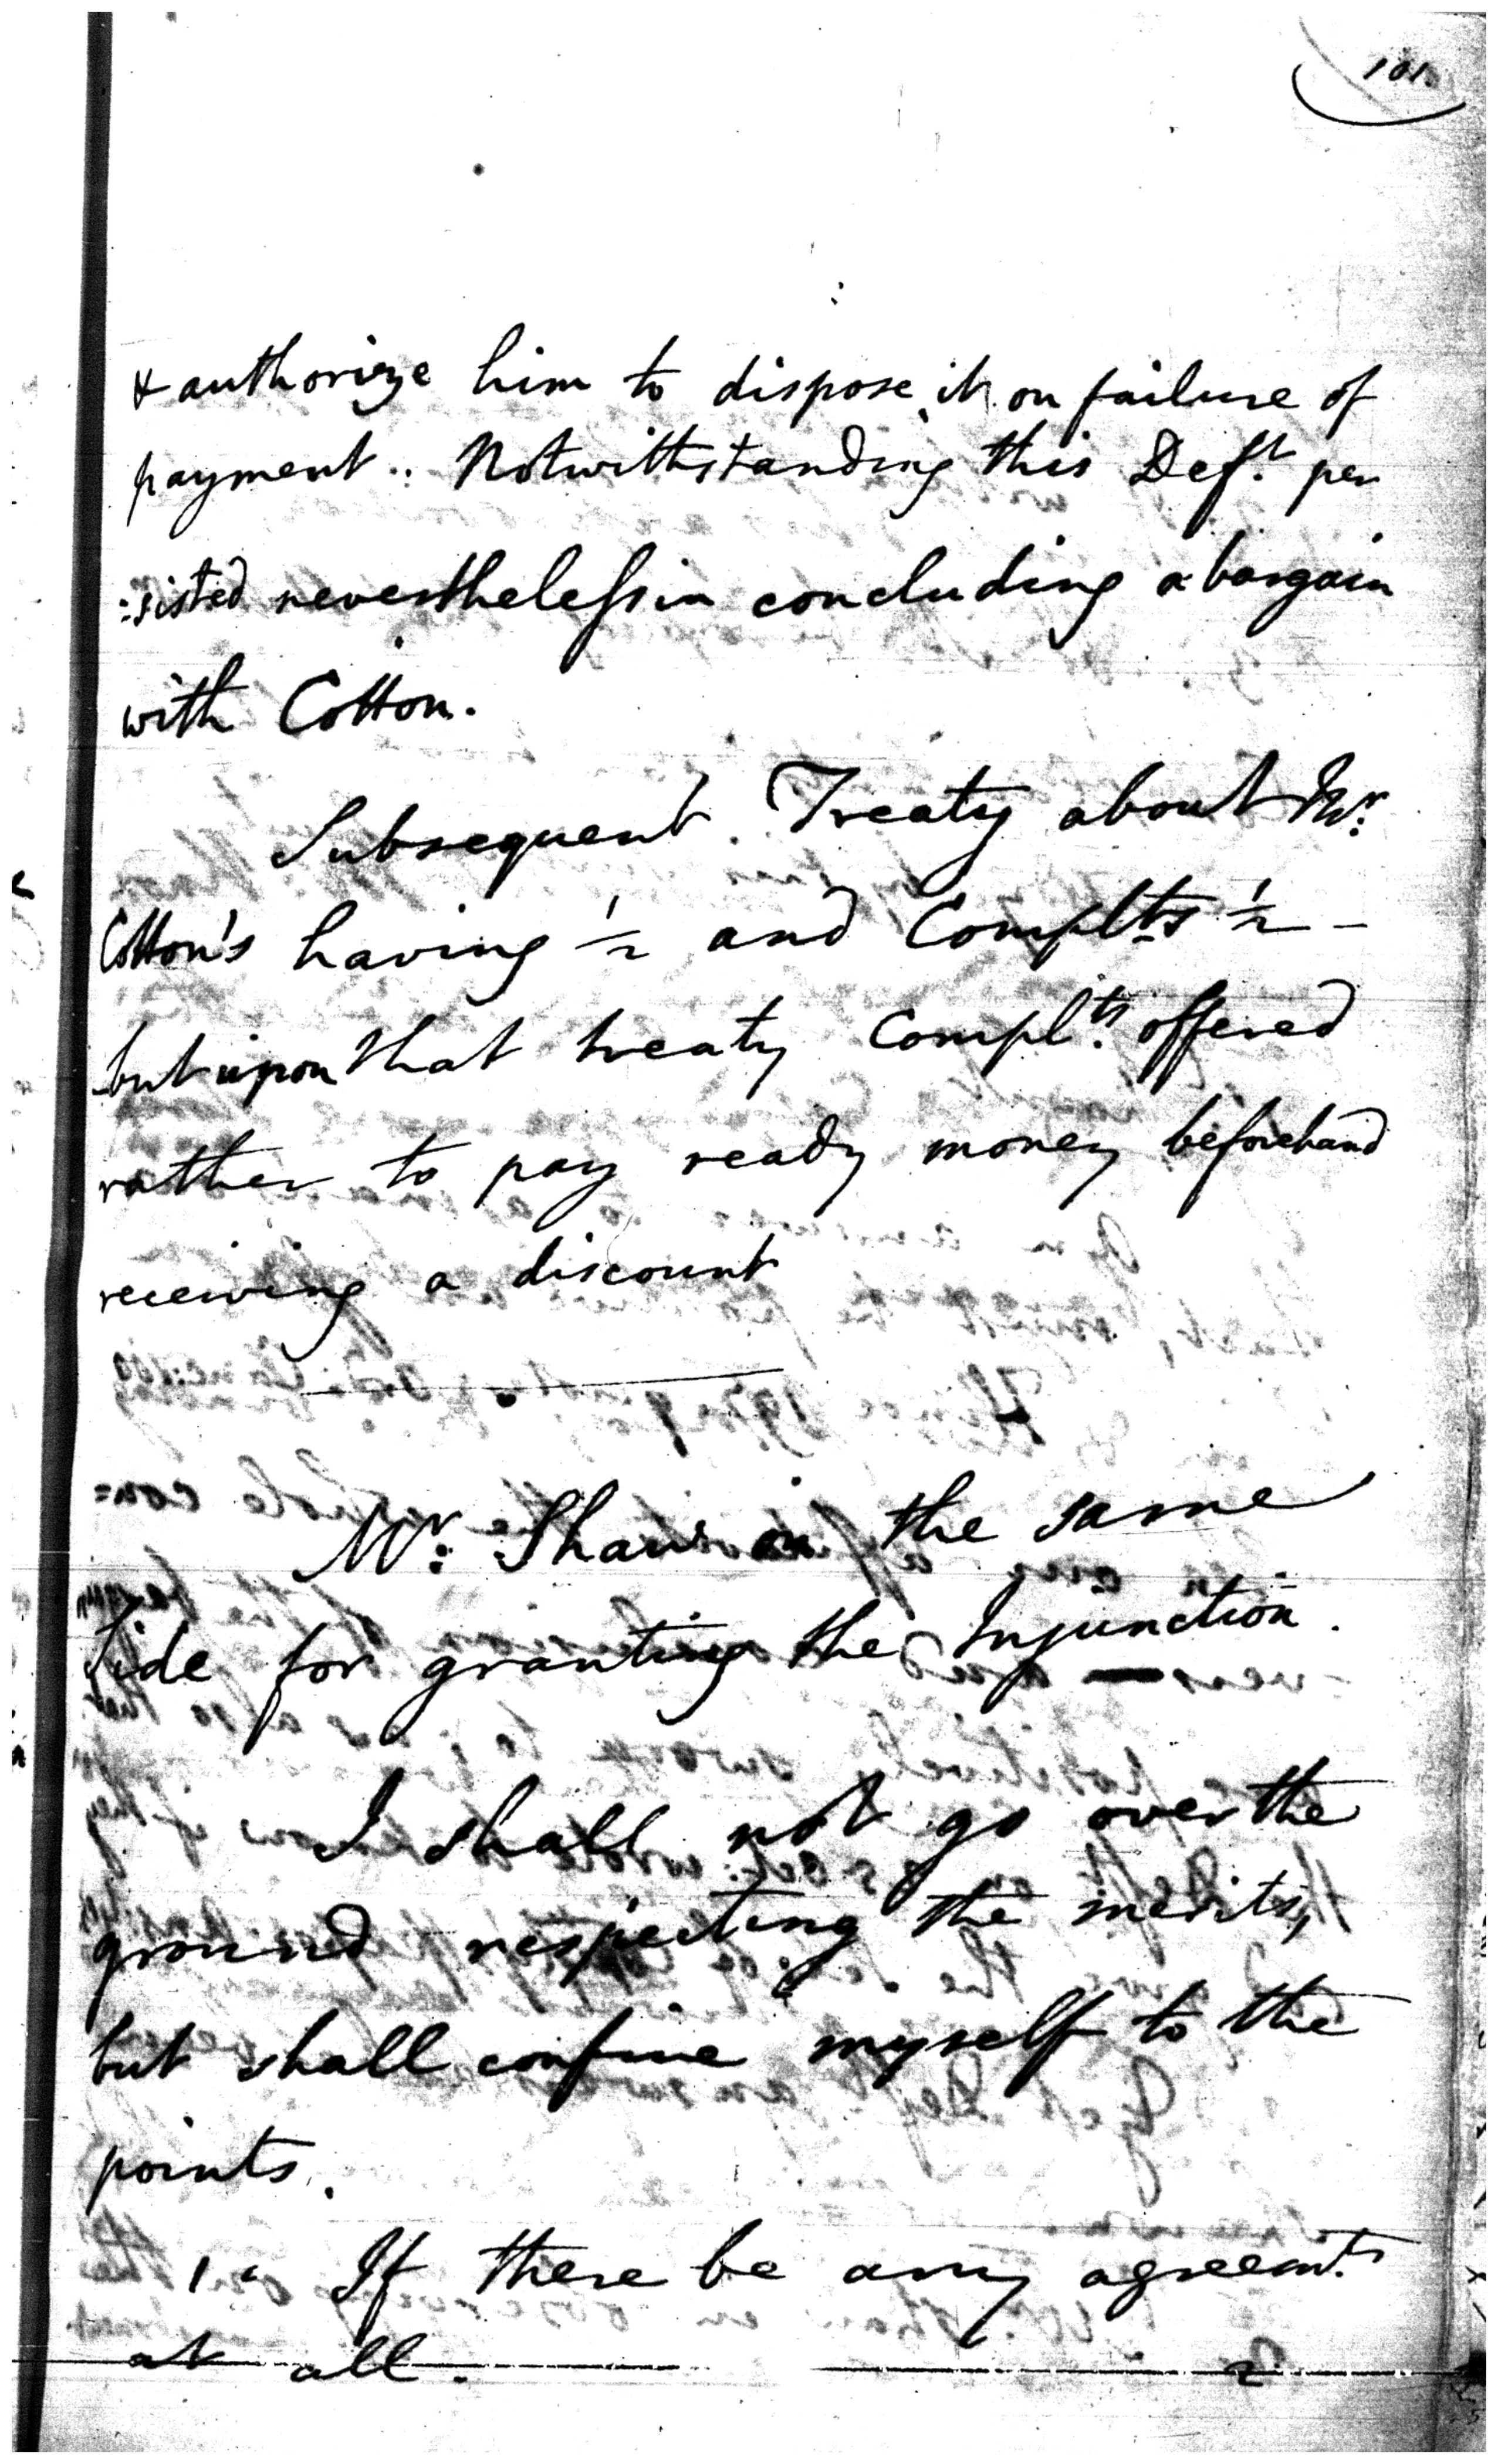 101
& authorize him to dispose it on failure of
payment.. Notwithstanding this Deft. per
:sisted nevertheless in concluding a bargain
with Cotton.
Subsequent Treaty about Mr:
Cotton's having 1/2 and Complts 1/2 -
but upon that treaty Complts. offered
rather to pay ready money beforehand
receiving a discount
Mr: Shaw on the same
side for granting the Injunction.
I shall not go over the
ground respecting the merits,
but shall confine myself to the
points.
1o If there be any agreemt.
at all.
2